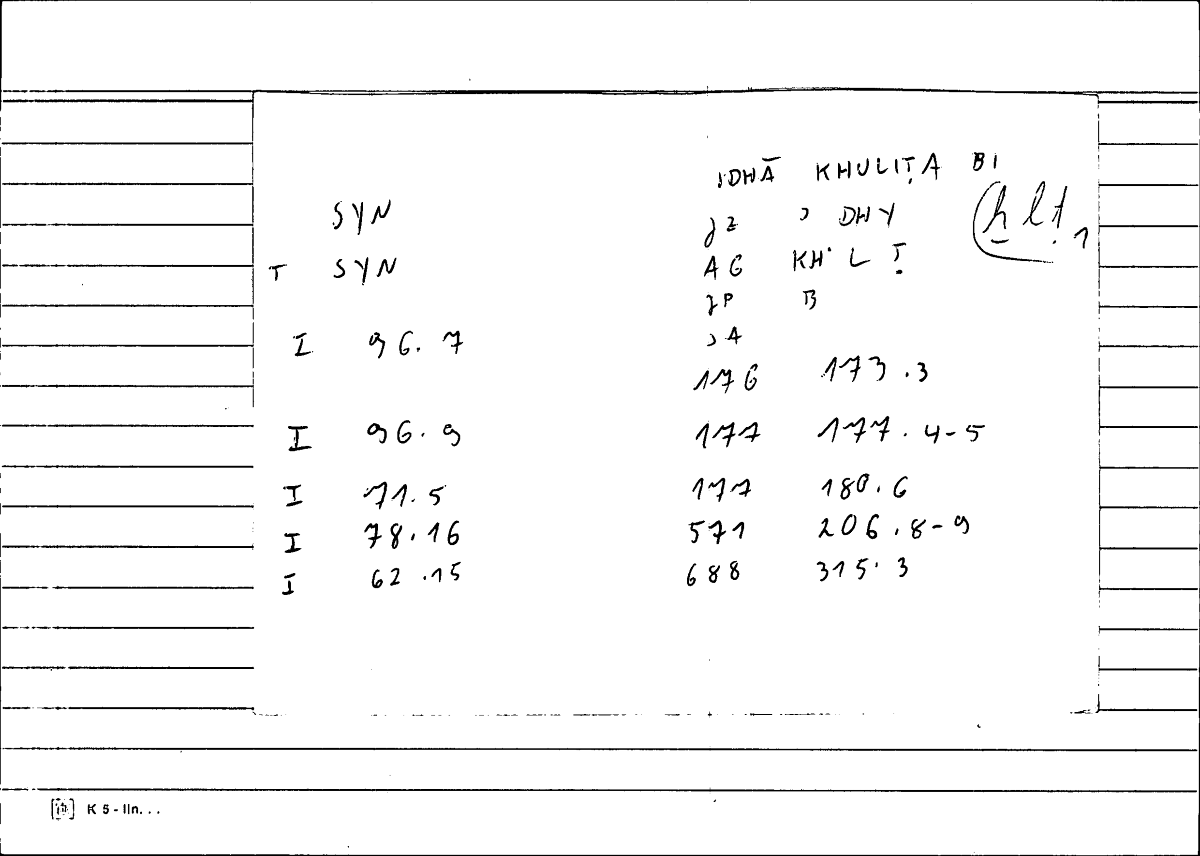 IDHĀ KHULIṬA BI
SYN JZ ʾ DHY ḫlṭ1
T SYN AG KH L Ṭ
JP B
I 96.7 ʾA
176 173.3
I 96.9 177 177.4-5
I 71.5 177 180.6
I 78.16 571 206.8-9
I 62.15 688 315.3
K 5 - lin...